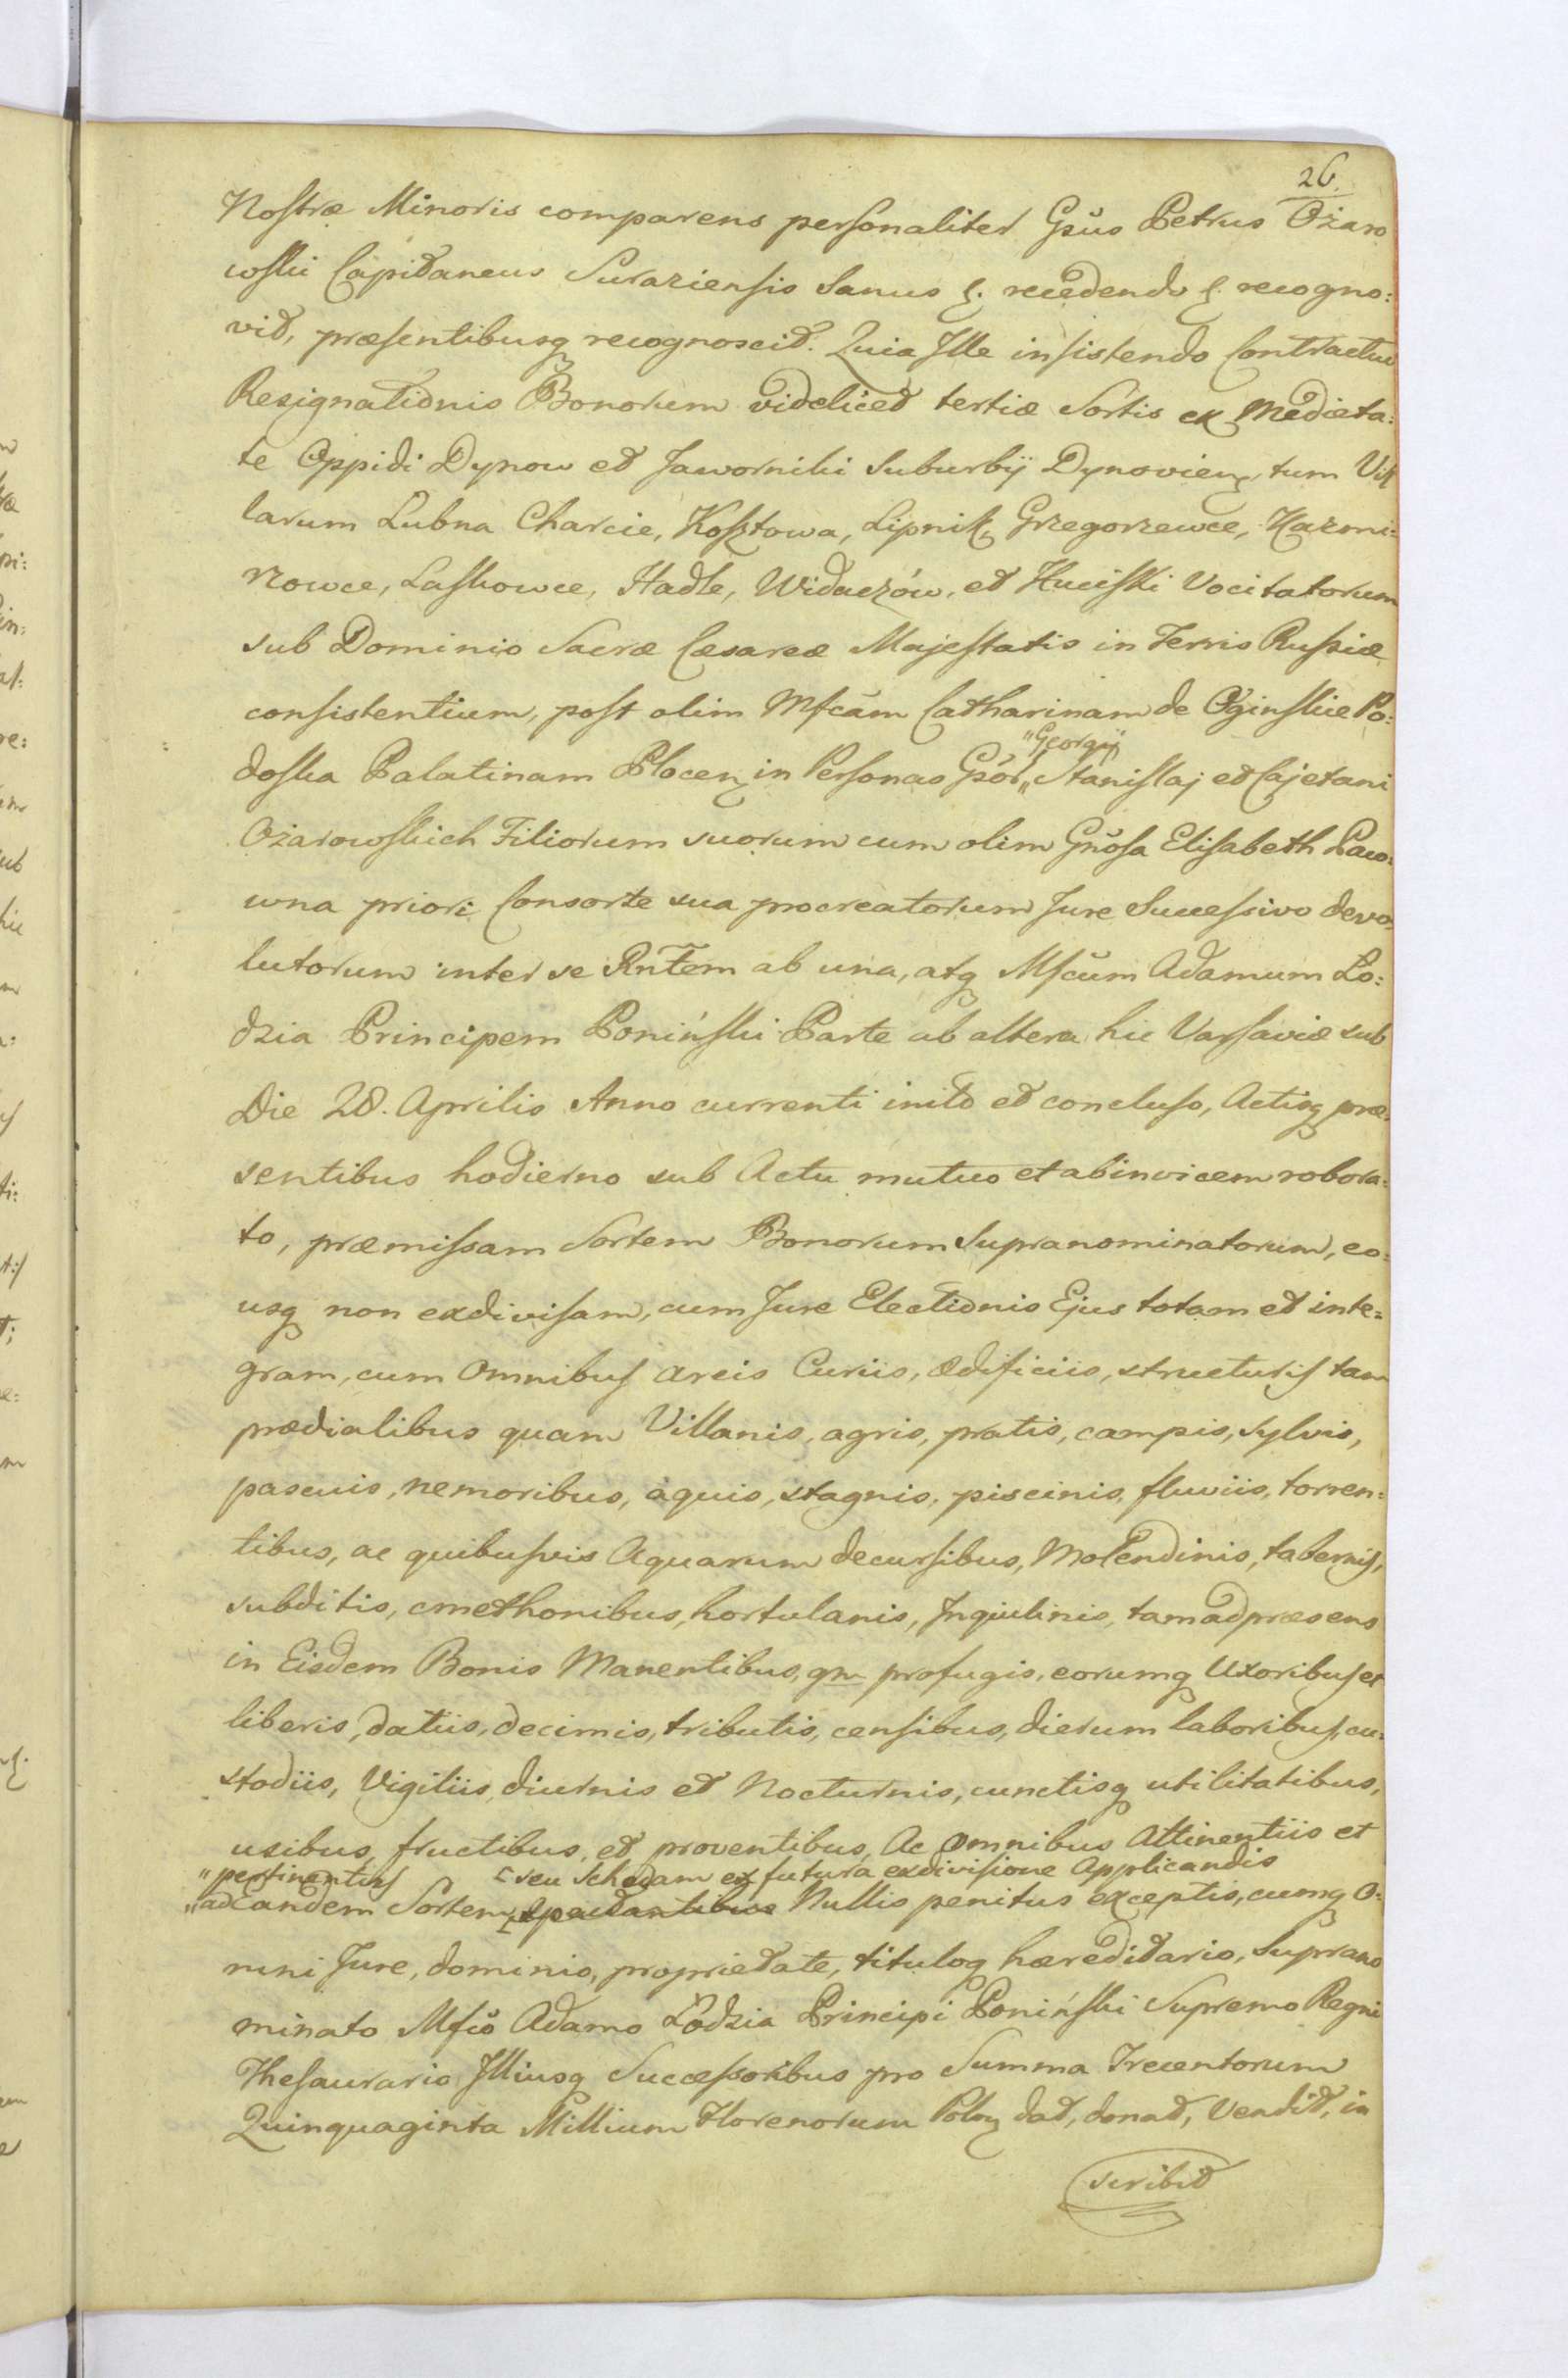 26.
Nostræ Minoris comparens personaliter Gsũs Petrus Ożaro
wski Capitaneus Suraziensis Sanus ꝛ. recedendo ꝛ. recogno:
vit, præsentibusq recognoscit. Quia Ille insistendo Contractui
Resignationis Bonorum videlicet tertiæ Sortis ex Medieta:
te Oppidi Dynow et Jawornihi Suburbij Dynovienꝫ, tum Vil
larum Łubna Charcie, Kosztowa, Lipnik, Grzegorzewce, Kazmi:
rzowce, Laskowce, Hadle, Widaczów, et Huciski Vocitatorum
sub Dominio Sacræ Cæsareæ Majestatis in Terris Russiæ
consistentium, post olim Mfcãm Catharinam de Oginskie Po:
"Georgij"
doska Palatinam Plocenꝫ in Personas Gsõr,, Stanislaj et Cajetani
Ożarowskich Filiorum suorum cum olim Gnõsa Elisabeth Paco:
wna priori Consorte sua procreatorum Jure Successivo devo,
lutorum inter se Rntẽm ab una, atq Mfcũm Adamum Lo:
dzia Principem Poniński Parte ab altera hic Varsaviæ sub
Die 28. Aprilis Anno currenti inito et concluso, Actisq præ:
sentibus hodierno sub Actu mutuo et abinvicem robora:
to, præmissam Sortem Bonorum Supranominatorum, eo:
usq non exdivisam, cum Jure Electionis Ejus totam et inte=
gram, cum Omnibus areis Curiis, ædificiis, structuris tam
prædialibus quam Villanis, agris, pratis, campis, sylvis,
pascuis, nemoribus, aquis, stagnis, piscinis, fluviis, torren=
tibus, ac quibusvis Aquarum decursibus, Molendinis, tabernis,
subditis, cmethonibus, hortulanis, Inquilinis, tam ad præsens
in Eisdem Bonis Manentibus, qm profugis, eorumq Uxoribus et
liberis, datiis, decimis, tributis, censibus, dierum laboribus, cu:
stodiis, Vigiliis, diurnis et Nocturnis, cunctisq utilitatibus,
usibus, fructibus, et proventibus, Ac Omnibus Attinentiis et
"pertinentiis seu Schedam ex futura exdivisione Applicandis
"ad Eandem Sortem, spectantibus Nullis penitus exceptis, cumq O:
mni Jure, dominio, proprietate, tituloq hæreditario, Suprano
minato Mfcõ Adamo Łodzia Principi Poniński Supremo Regni
Thesaurario Illiusq Successoribus pro Summa Trecentorum
Quinquaginta Millium Florenorum Polonꝫ dat, donat, Vendit, in
scribit